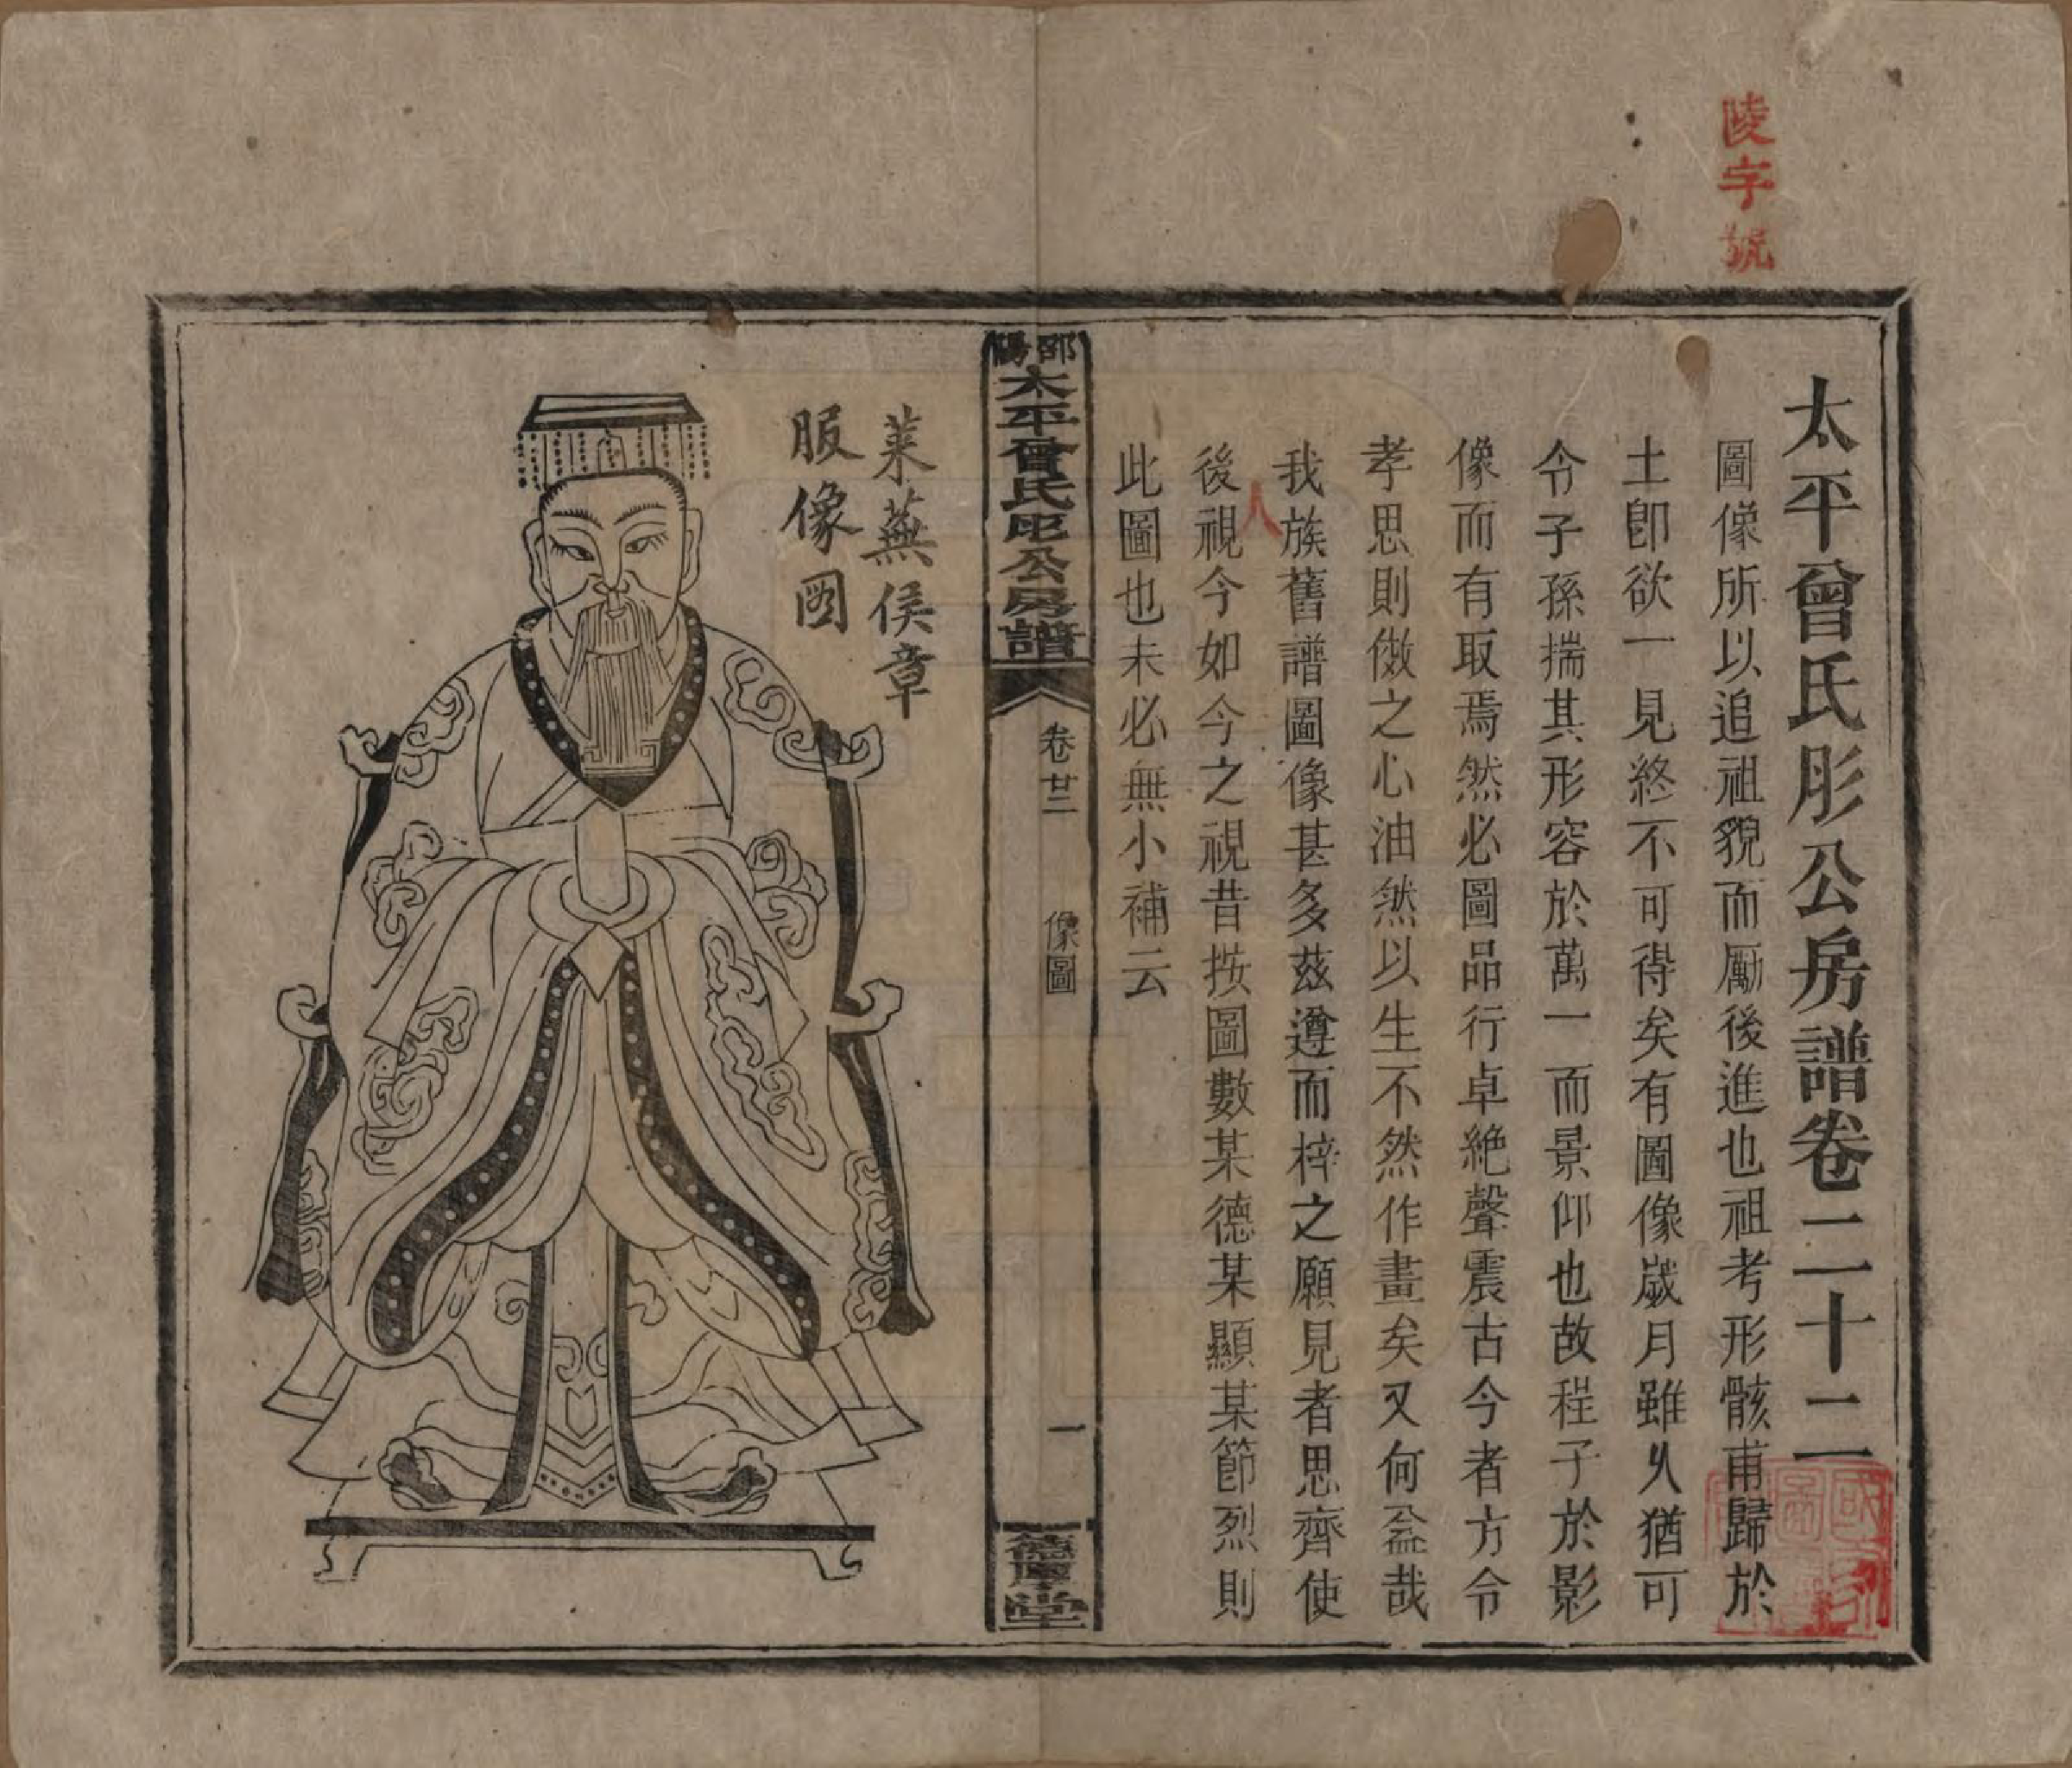 陵字號
太平曾氏彤公房譜卷二十二
圖像所以追祖貌而勵後進也祖考形骸甫歸於
土卽欲一見終不可得矣有圖像歲月雖久猶可
令子孫揣其形容於萬一而景仰也故程子於影
像而有取焉然必圖品行卓絶聲震古今者方令
孝思則傚之心油然以生不然作畫矣又何益哉
我族舊譜圖像甚多茲遵而梓之願見者思齊使
人
後視今如今之視昔按圖數某德某顯某節烈則
此圖也未必無小補云
邵陽太平曾氏彤公房譜
卷廿二
像圖
一
德厚堂
萊蕪侯章
服像图